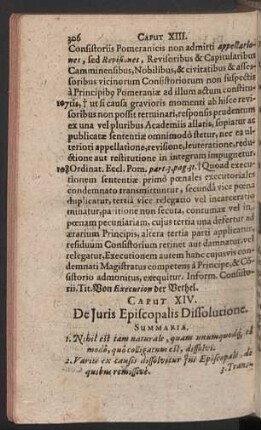 306 CAPUT XIII.
Consistoriis Pomeranicis non admitti appellatio-
nes, sed Revisiones, Revisoribus & Capitularibus
Camminensibus, Nobilibus, & civitatibus & asses-
soribus vicinorum Consistoriorum non suspectis
à Principibꝰ Pomeraniæ ad illum actum constitu-
107 tis, † ut si causa gravioris momenti ab hisce revi-
soribus non possit terminari, responsis prudentum
ex una vel pluribus Academiis allatis, sopiatur ac
publicatæ sententiæ omnimodò stetur, nec ea ul-
teriori appellatione, revisione, leuteratione, redu-
ctione aut restitutione in integrum impugnetur.
108 Ordinat. Eccl. Pom. part. 3. pag. 31. † Quoad execu-
tionem sententiæ primò pœnales executoriales
condemnato transmittuntur, secundâ vice pœna
duplicatur, tertia vice relegatio vel incarceratio
minatur, paritione non secuta, contumax vel in
pœnam pecuniariam, cujus tertia una desertur ad
ærarium Principis, altera tertia parti applicatur,
residuum Consistorium retinet aut damnatur, vel
relegatur, Executionem autem hanc cujusvis con-
demnati Magistratus competens à Principe, & Co-
sistorio admonitus, exequitur. Inform. Consisto-
rii. Tit. Von Execution der Urthel.
CAPUT XIV.
De Juris Episcopalis Dissolutione.
SUMMARIA.
1. Nihil est tam naturale, quam unumquodq; eo
modo, quò colligatum est, dissolvi.
2. Variis ex causis dissolvitur Jus Episcopale, de
quibus remissivè.
3. Trans-